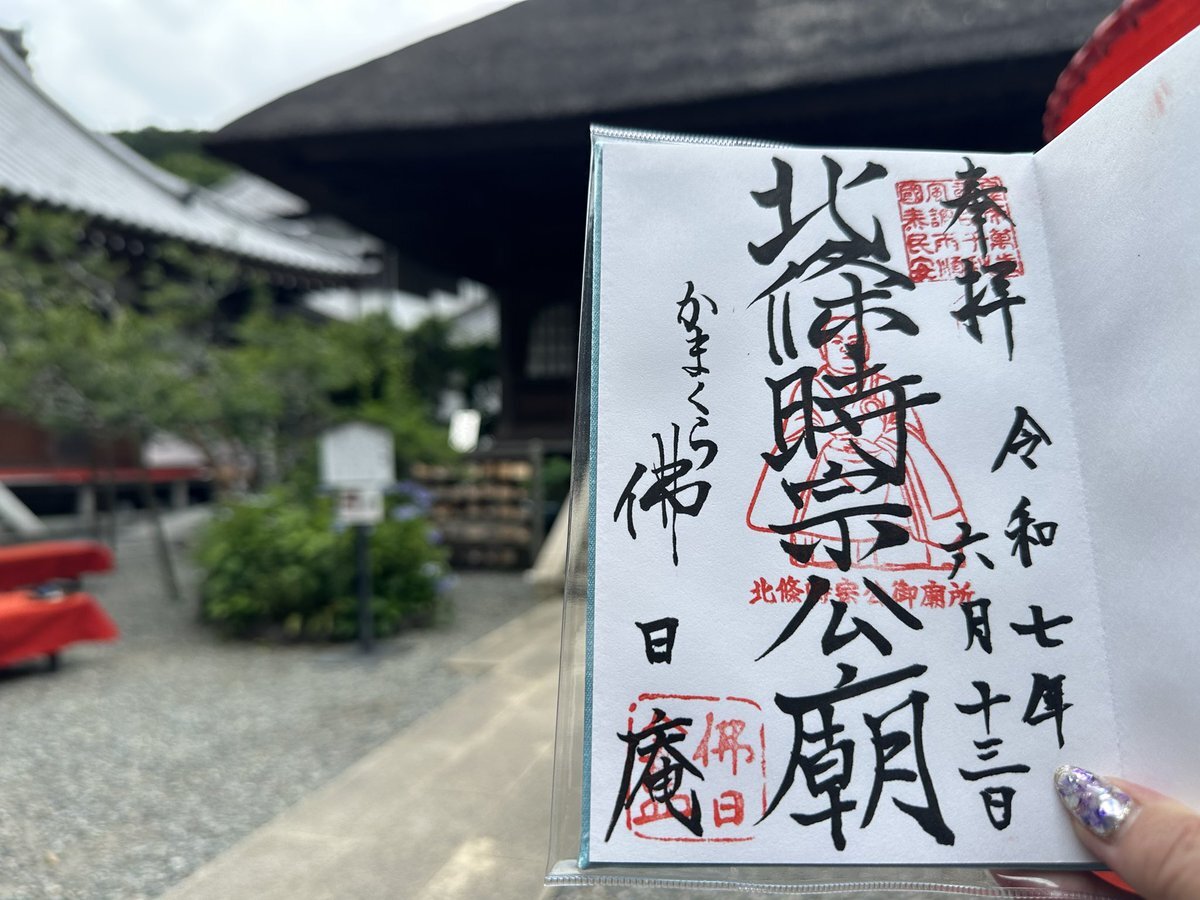 奉拝
令和七年
六月十三日
北條時宗公廟
北條時宗公御廟所
かまくら
佛日庵
國泰民安
佛日